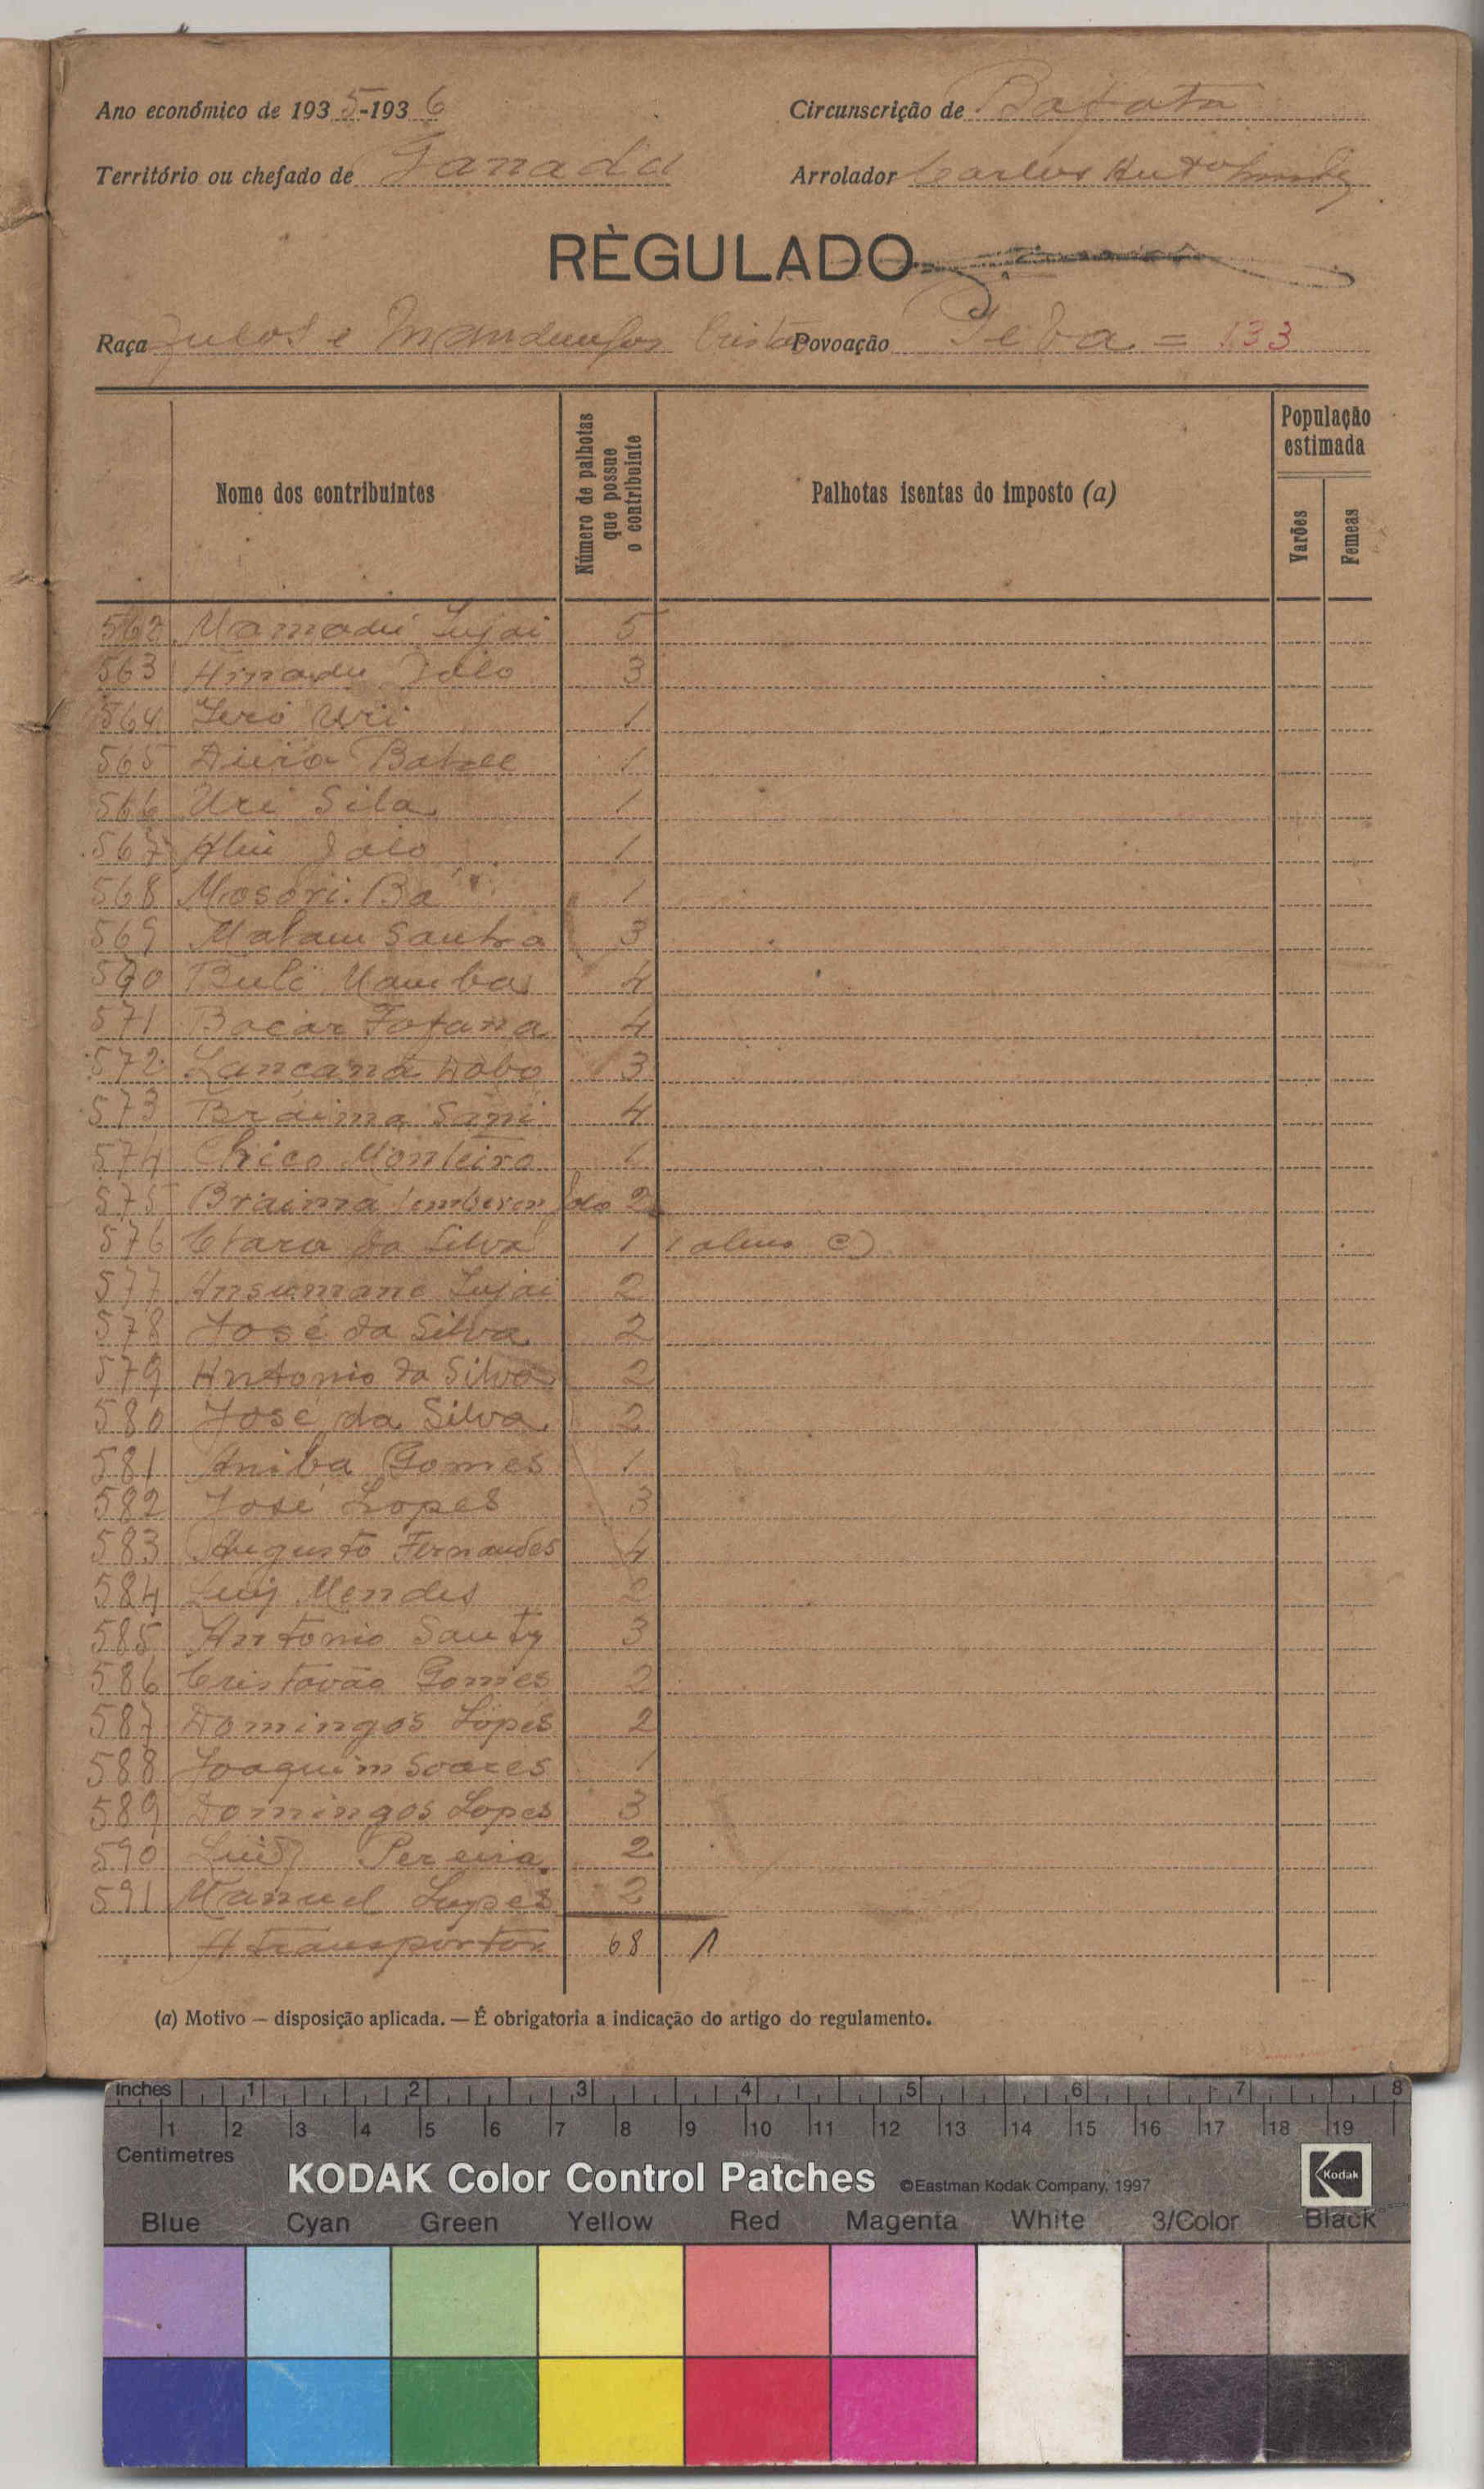 Ano económico de 1935-1936
Circunscrição de Bafata
Território ou chefado de Ganadu
Arrolador Carlos
RÈGULADO
Raça Fulas e Mandingas Cristãos
Povoação Geba = 133
Nome dos contribuintes
Número de palhotas que possue o contribuinte
Palhotas isentas do imposto (a)
População estimada
Varões
Femeas
562 Mamadú Lujai 5
563 Amadu Jalo 3
564 Jeró Uri 1
565 1
566 Uri Sila 1
567 Aliú Jalo 1
568 Mosori Ba 1
569 Malam 3
570 4
571 Bocar Fofana 4
572 Lancaná 3
573 Braima Sani 4
574 Chico Monteiro 1
575 Braima 2
576 Clara da Silva 1 1
577 Ansumane Lujai 2
578 José da Silva 2
579 Antonio da Silva 2
580 José da Silva 2
581 Aniba Gomes 1
582 José Lopes 3
583 Augusto Fernandes 4
584 Luiz Mendes 2
585 Antonio 3
586 Cristovão Gomes 2
587 Domingos Lopes 2
588 Joaquim Soares 1
589 Domingos Lopes 3
590 Luiz Pereira 2
591 Manuel Lopes 2
A transportar 68 1
(a) Motivo — disposição aplicada. — É obrigatoria a indicação do artigo do regulamento.
Inches 1 2 3 4 5 6 7 8
1 2 3 4 5 6 7 8 9 10 11 12 13 14 15 16 17 18 19
Centimetres
KODAK Color Control Patches ©Eastman Kodak Company, 1997
Kodak
Blue Cyan Green Yellow Red Magenta White 3/Color Black